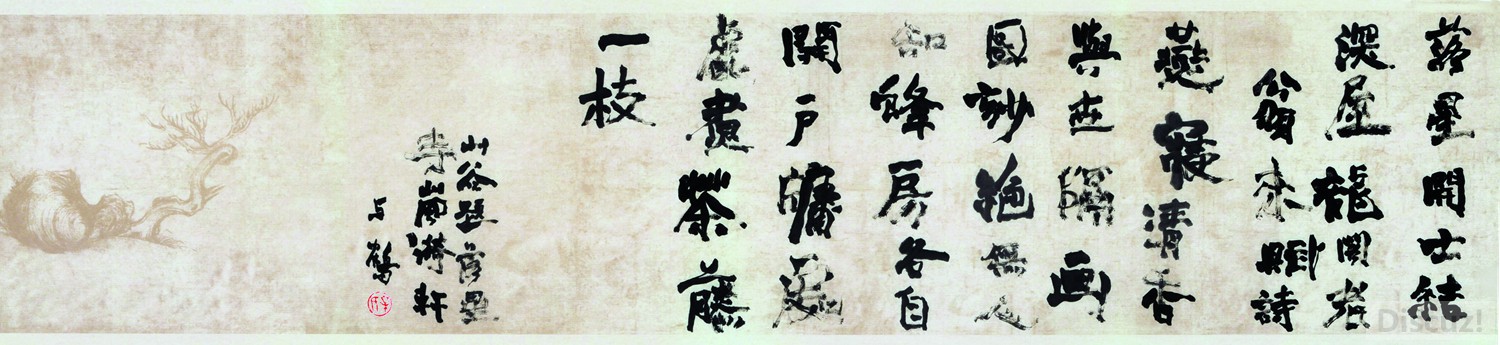 落星開士結
深屋龍閣老
翁來賦詩
燕寢清香
與世隔画
圖妙絕無人
知蜂房各自
開戶牖處
處煮茶藤
一枝
山谷題落星
寺嵐漪軒
Discuz!